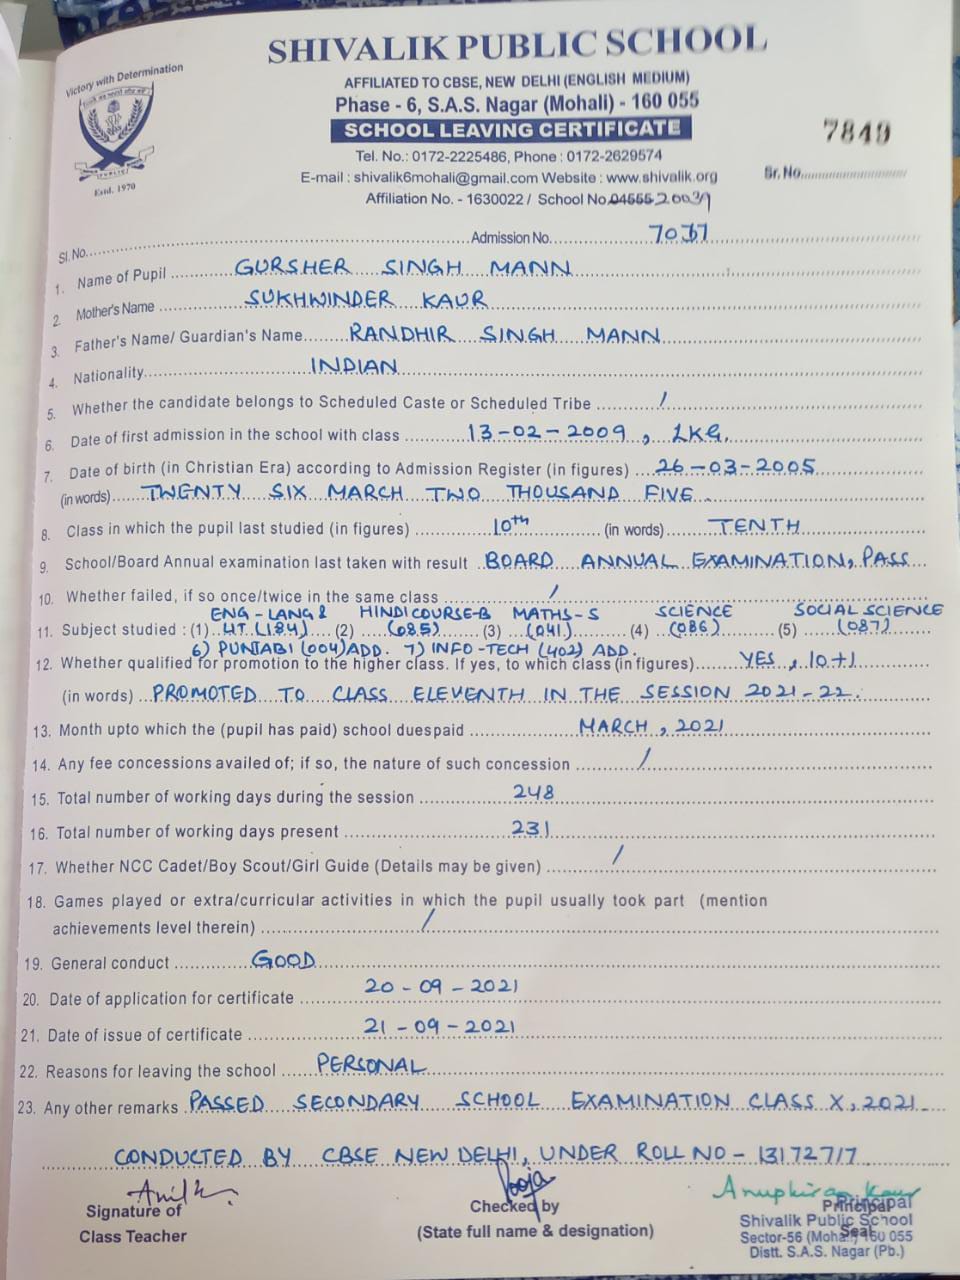 SHIVALIK PUBLIC SCHOOL
Victory with Determination
AFFILIATED TO CBSE, NEW DELHI (ENGLISH MEDIUM)
Phase - 6, S.A.S. Nagar (Mohali) - 160 055
SCHOOL LEAVING CERTIFICATE
7849
Tel. No.: 0172-2225486, Phone : 0172-2629574
E-mail : shivalik6mohali@gmail.com Website : www.shivalik.org
Sr. No.
PUBLIC
Estd. 1970
Affiliation No. - 1630022 / School No. 04555 20039
Sl. No. Admission No. 7037
1. Name of Pupil GURSHER SINGH MANN
2. Mother's Name SUKHWINDER KAUR
3. Father's Name/ Guardian's Name RANDHIR SINGH MANN
4. Nationality INDIAN
5. Whether the candidate belongs to Scheduled Caste or Scheduled Tribe /
6. Date of first admission in the school with class 13-02-2009, LKG.
7. Date of birth (in Christian Era) according to Admission Register (in figures) 26-03-2005
(in words) TWENTY SIX MARCH TWO THOUSAND FIVE
8. Class in which the pupil last studied (in figures) 10th (in words) TENTH
9. School/Board Annual examination last taken with result BOARD ANNUAL EXAMINATION, PASS
10. Whether failed, if so once/twice in the same class /
ENG-LANG & HINDI COURSE-B MATHS-S SCIENCE SOCIAL SCIENCE
11. Subject studied : (1) LIT. (184) (2) (085) (3) (041) (4) (086) (5) (087)
6) PUNJABI (004) ADD. 7) INFO-TECH (402) ADD.
12. Whether qualified for promotion to the higher class. If yes, to which class (in figures) YES, 10+1
(in words) PROMOTED TO CLASS ELEVENTH IN THE SESSION 2021-22.
13. Month upto which the (pupil has paid) school duespaid MARCH, 2021
14. Any fee concessions availed of; if so, the nature of such concession /
15. Total number of working days during the session 248
16. Total number of working days present 231
17. Whether NCC Cadet/Boy Scout/Girl Guide (Details may be given) /
18. Games played or extra/curricular activities in which the pupil usually took part (mention
achievements level therein) /
19. General conduct GOOD
20. Date of application for certificate 20-09-2021
21. Date of issue of certificate 21-09-2021
22. Reasons for leaving the school PERSONAL
23. Any other remarks PASSED SECONDARY SCHOOL EXAMINATION CLASS X, 2021
CONDUCTED BY CBSE NEW DELHI, UNDER ROLL NO - 13172717
Pooja Anupkiran Kaur
Signature of Checked by Principal Principal
Class Teacher (State full name & designation) Seal
Shivalik Public School
Sector-56 (Mohali) 160 055
Distt. S.A.S. Nagar (Pb.)